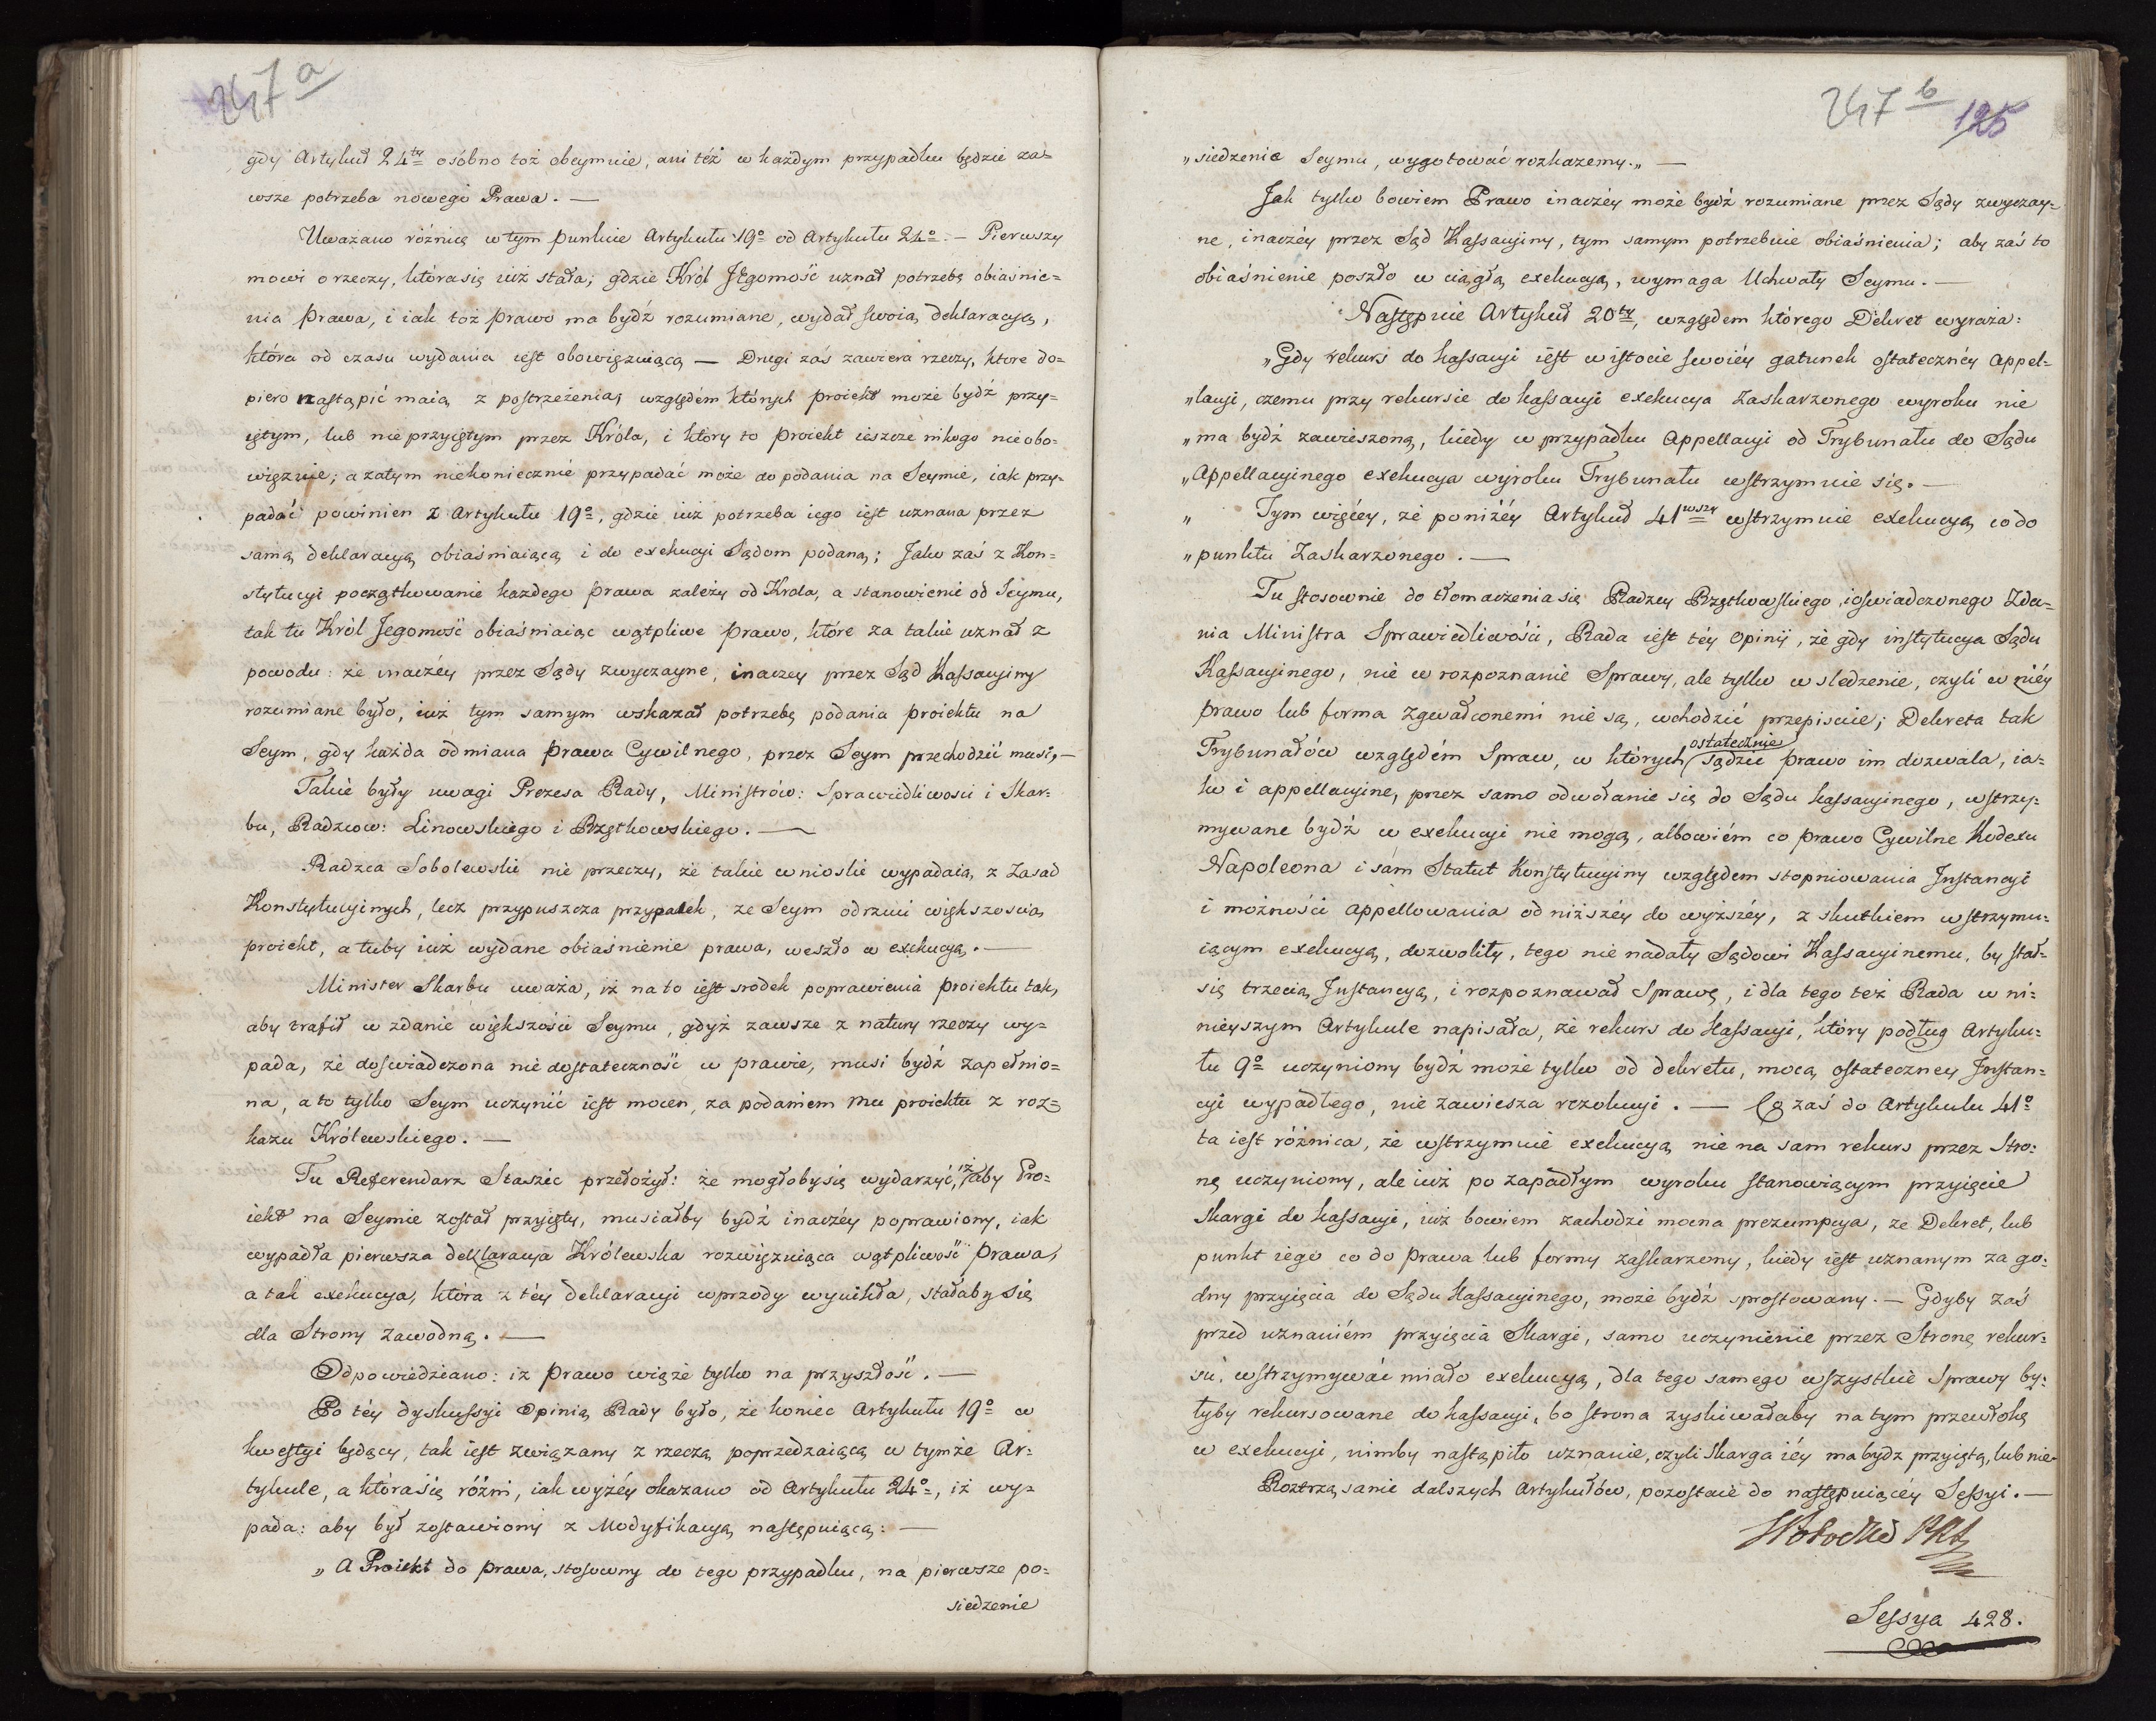 247 a
gdy Artykuł 24ty osóbno toż obeymuie, ani też w każdym przypadku będzie za=
wsze potrzeba nowego Prawa. —
Uważano różnicę w tym punkcie Artykułu 19o od Artykułu 24o. — Pierwszy
mowi o rzeczy, która się iuż stała; gdzie Król Jegomość uznał potrzebę obiaśnie=
nia prawa, i iak toż prawo ma bydź rozumiane, wydał swoią deklaracyą,
która od czasu wydania iest obowięzuiącą — Drugi zaś zawiera rzeczy, ktore do=
piero nastąpić maią z postrzeżenia; względem których proiekt może bydź przy=
iętym, lub nieprzyiętym przez Króla, i ktory to proiekt ieszcze nikogo nieobo=
więzuie; a zatym niekoniecznie przypadać może do podania na Seymie, iak przy=
padać powinien z Artykułu 19o, gdzie iuż potrzeba iego iest uznana przez
samą deklaracyą obiaśniaiącą i do exekucyi Sądom podaną; Jako zaś z Kon=
stytucyi początkowanie każdego prawa zależy od Krola, a stanowienie od Seymu,
tak tu Król Jegomość obiaśniaiąc wątpliwe prawo, które za takie uznał z
powodu: że inaczéy przez Sądy zwyczayne, inaczey przez Sąd Kassacyiny
rozumiane było, iuż tym samym wskazał potrzebę podania proiektu na
Seym, gdy każda odmiana prawa Cywilnego, przez Seym przechodzić musi, —
Takie były uwagi Prezesa Rady, Ministrów: Sprawiedliwosci i Skar=
bu, Radzcow: Linowskiego i Rzętkowskiego. —
Radzca Sobolewski nie przeczy, że takie wnioski wypadaią z Zasad
Konstytucyinych, lecz przypuszcza przypadek, ze Seym odrzuci większoscią
proiekt, a tuby iuż wydane obiaśnienie prawa, weszło w exekucyą. —
Minister Skarbu uważa, iż na to iest srodek poprawienia proiektu tak,
aby trafił w zdanie większości Seymu, gdyż zawsze z natury rzeczy wy=
pada, że doświadczona niedostateczność w prawie, musi bydź zapełnio=
na, a to tylko Seym uczynić iest mocen, za podaniem mu proiektu z roz=
kazu Królewskiego. —
Tu Referendarz Staszic przełożył: że mogłoby się wydarzyć, iż aby Pro=
iekt na Seymie został przyięty, musiałby bydź inaczéy poprawiony, iak
wypadła pierwsza deklaracya Królewska rozwięzuiąca wątpliwość prawa,
a tak exekucya, która z téy deklaracyi wprzody wynikła, stałaby się
dla Strony zawodną. —
Odpowiedziano: iż prawo wiąże tylko na przyszłość. —
Po téy dyskussyi opinią Rady było, że koniec Artykułu 19o w
kwestyi będący, tak iest związany z rzeczą poprzedzaiącą w tymże Ar=
tykule, a która się różni, iak wyżéy okazano od Artykułu 24o, iż wy=
pada: aby był zostawiony z Modyfikacyą następuiącą: —
„A Proiekt do prawa, stosowny do tego przypadku, na pierwsze po=
siedzenie
247 b
125
„siedzenie Seymu, wygotować rozkażemy.„ —
Jak tylko bowiem Prawo inaczéy może bydź rozumiane przez Sądy zwyczay=
ne, inaczéy przez Sąd Kassacyiny, tym samym potrzebuie obiaśnienia; aby zaś to
obiaśnienie poszło w ciągłą exekucyą, wymaga Uchwały Seymu. —
Następuie Artykuł 20ty, względem którego Dekret wyraża:
„Gdy rekurs do kassacyi iest w istocie swoiéy gatunek ostatecznéy Appel=
„lacyi, czemu przy rekursie do kassacyi exekucya Zaskarzonego wyroku nie
„ma bydź zawieszoną, kiedy w przypadku Appellacyi od Trybunału do Sądu
„Appellacyinego exekucya wyroku Trybunału wstrzymuie się. —
„ Tym więcéy, że poniżéy Artykuł 41wszy wstrzymuie exekucyą co do
„punktu Zaskarzonego. —
Tu stosownie do tłomaczenia się Radzcy Rzętkowskiego, i oświadczonego Zda=
nia Ministra Sprawiedliwości, Rada iest téy opinii, że gdy instytucya Sądu
Kassacyinego, nie w rozpoznanie Sprawy, ale tylko w sledzenie, czyli w niéy
prawo lub forma zgwałconemi nie są, wchodzić przepisuie; Dekreta tak
Trybunałów względém Spraw, w których ostatecznie sądzić prawo im dozwala, ia=
ko i appellacyine, przez samo odwołanie się do Sądu kassacyinego, wstrzy=
mywane bydź w exekucyi nie mogą, albowiém co prawo Cywilne Kodexu
Napoleona i sam Statut Konstytucyiny względem stopniowania Instancyi
i możności appellowania od niższéy do wyższéy, z skutkiem wstrzymu=
iącym exekucyą, dozwoliły, tego nie nadały Sądowi Kassacyinemu, by stał=
się trzecią Instancyą, i rozpoznawał Sprawę, i dla tego też Rada w ni=
nieyszym Artykule napisała, że rekurs do Kassacyi, który podług Artyku=
łu 9o uczyniony bydź może tylko od dekretu, mocą ostateczney Instan=
cyi wypadłego, nie zawiesza rezolucyi. — Co zaś do Artykułu 41o
ta iest różnica, że wstrzymuie exekucyą nie na sam rekurs przez Stro=
nę uczyniony, ale iuż po zapadłym wyroku stanowiącym przyięcie
Skargi do kassacyi, iuż bowiem zachodzi mocna prezumpcya, ze Dekret, lub
punkt iego co do prawa lub formy zaskarzony, kiedy iest uznanym za go=
dny przyięcia do Sądu Kassacyinego, może bydź sprostowany. — Gdyby zaś
przed uznaniém przyięcia Skargi, samo uczynienie przez Stronę rekur=
su, wstrzymywać miało exekucyą, dla tego samego wszystkie Sprawy by=
łyby rekursowane do kassacyi, bo strona zyskiwałaby na tym przewłokę
w exekucyi, nimby nastąpiło uznanie, czyli Skarga iéy ma bydz przyiętą, lub nie.
Roztrząsanie dalszych Artykułów, pozostaie do następuiącéy Sessyi. —
Sessya 428.